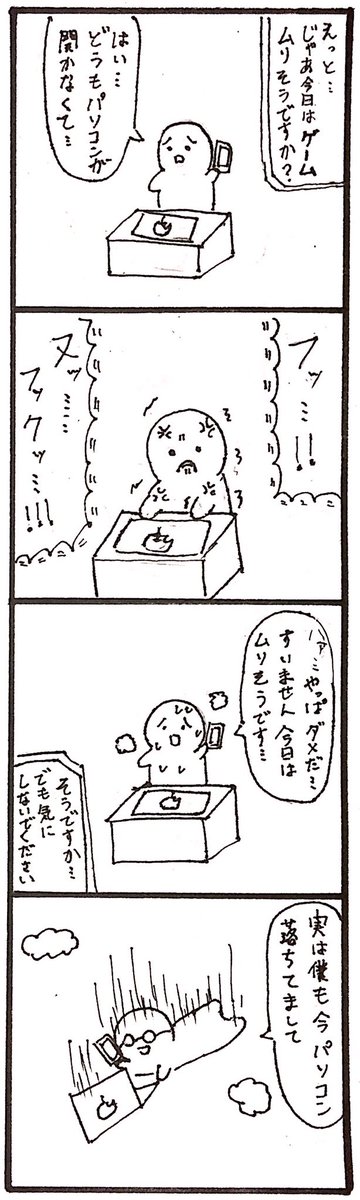 えっと…
じゃあ今日はゲーム
ムリそうですか?
はい…
どうもパソコンが
開かなくて…
フッ…!!!
ヌッ……
フックッ…!!!
ハァ…やっぱダメだ…
すいません今日は
ムリそうです…
そうですか…
でも気に
しないでください
実は僕も今パソコン
落ちてまして